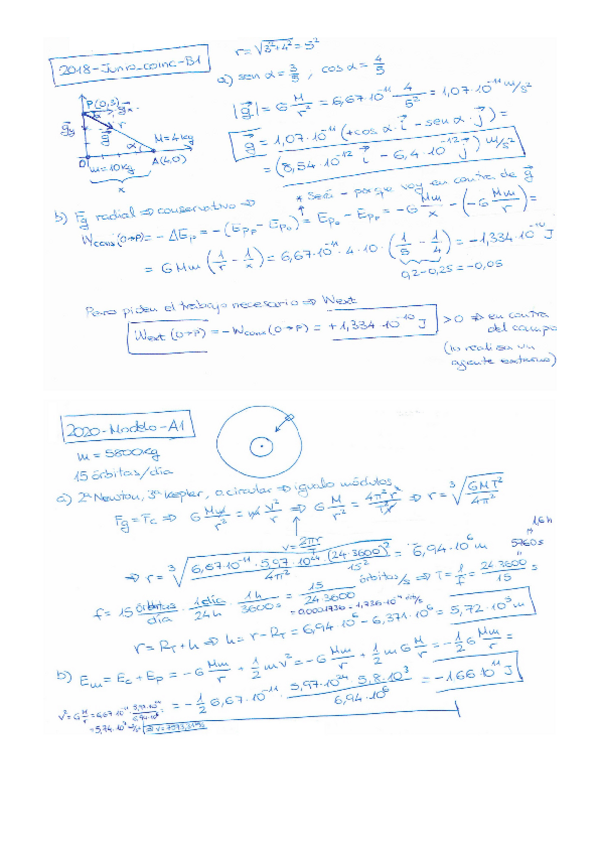 2018-Junio_coinc-B1
r = √3²+4² = 5²
a) sen α = 3/5 , cos α = 4/5
P(0,3)
M = 4kg
m = 10kg
A(4,0)
|g⃗| = G M/r² = 6,67·10⁻¹¹ 4/5² = 1,07·10⁻¹¹ m/s²
g⃗ = 1,07·10⁻¹¹ (+cos α · i⃗ - sen α · j⃗) =
= (8,54·10⁻¹² i⃗ - 6,4·10⁻¹² j⃗) m/s²
* Será - porque voy en contra de g⃗
b) F⃗g radial ⇒ conservativo ⇒
Wcons (0→P) = -ΔEp = -(Epp - Epo) = Epo - Epp = -G Mm/x - (-G Mm/r) =
= GMm (1/r - 1/x) = 6,67·10⁻¹¹ · 4 · 10 · (1/5 - 1/4) = -1,334·10⁻¹⁰ J
0,2-0,25 = -0,05
Para piden el trabajo necesario ⇒ Wext
Wext (0→P) = -Wcons (0→P) = +1,334·10⁻¹⁰ J > 0 ⇒ en contra
del campo
(lo realiza un
agente externo)
2020-Modelo-A1
m = 5800kg
15 órbitas/día
a) 2ª Newton, 3ª Kepler, o circular ⇒ igualo módulos
Fg = Fc ⇒ G Mm/r² = m v²/r ⇒ G M/r² = 4π² r/T² ⇒ r = ³√GMT²/4π²
v = 2πr/T
⇒ r = ³√6,67·10⁻¹¹ · 5,97·10²⁴ (24·3600)²/4π² 15² = 6,94·10⁶ m
1,6h
5760s
f = 15 órbitas/día · 1día/24h · 1h/3600s = 15/24·3600 órbitas/s ⇒ T = 1/f = 24·3600/15 s
= 0,0001736 = 1,736·10⁻⁴
r = RT + h ⇒ h = r - RT = 6,94·10⁶ - 6,371·10⁶ = 5,72·10⁵ m
b) Em = Ec + Ep = -G Mm/r + 1/2 m v² = -G Mm/r + 1/2 m G M/r = -1/2 G Mm/r =
= -1/2 6,67·10⁻¹¹ · 5,97·10²⁴ · 5,8·10³/6,94·10⁶ = -1,66·10¹¹ J
v² = G M/r = 6,67·10⁻¹¹ · 5,97·10²⁴/6,94·10⁶ =
= 5,74·10⁷